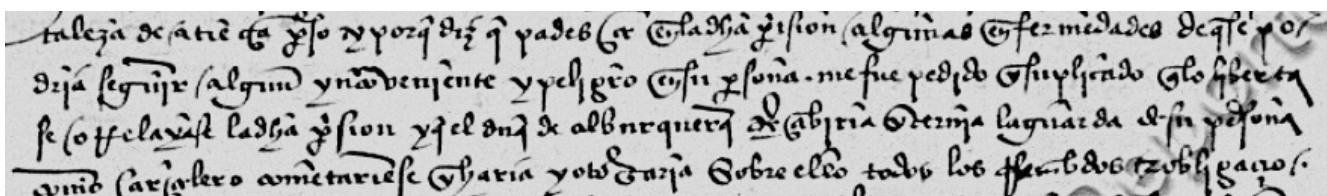 taleza de atiença pͬso y porq̃ diz q̃ padesçe en la dha pͬision algunas enfermedades de q̃ se po
dria seguir algun ynconveniente y peligro en su pͬsona me fue pedido e suplicado q̃ lo liberta
se o relaxase la dha pͬsion y q̃ el duq̃ de alburquerq̃ Resçibiria e ternia la guarda de su persona
como carçelero comentariense e haria y otorgaria sobre ello todos los e obligaçio